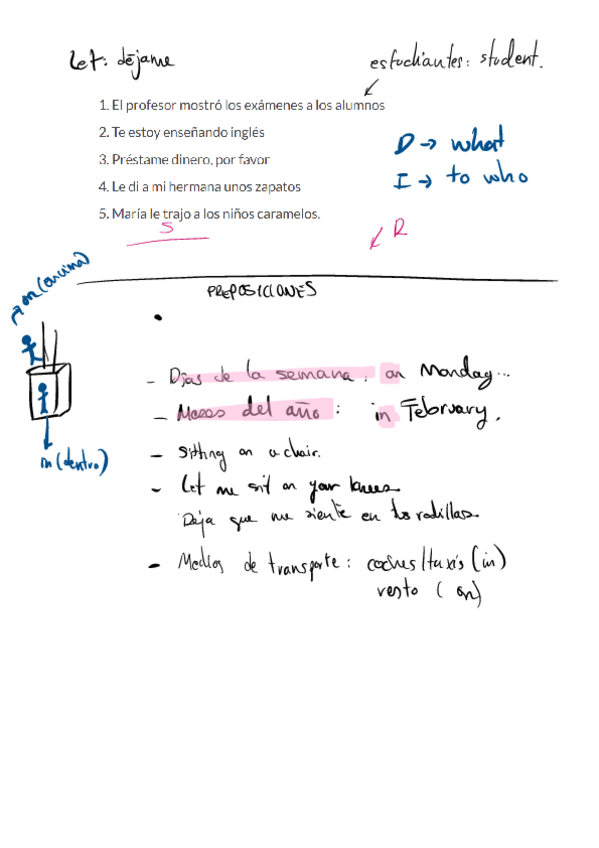 Let: déjame
estudiantes: student.
1. El profesor mostró los exámenes a los alumnos
2. Te estoy enseñando inglés
3. Préstame dinero, por favor
4. Le di a mi hermana unos zapatos
5. María le trajo a los niños caramelos.
D → what
I → to who
S
R
on (encima)
in (dentro)
PREPOSICIONES
- Días de la semana: on Monday...
- Meses del año: in February.
- Sitting on a chair.
- Let me sit on your knees
Deja que me siente en tus rodillas
- Medios de transporte: coches/taxis (in)
resto (on)